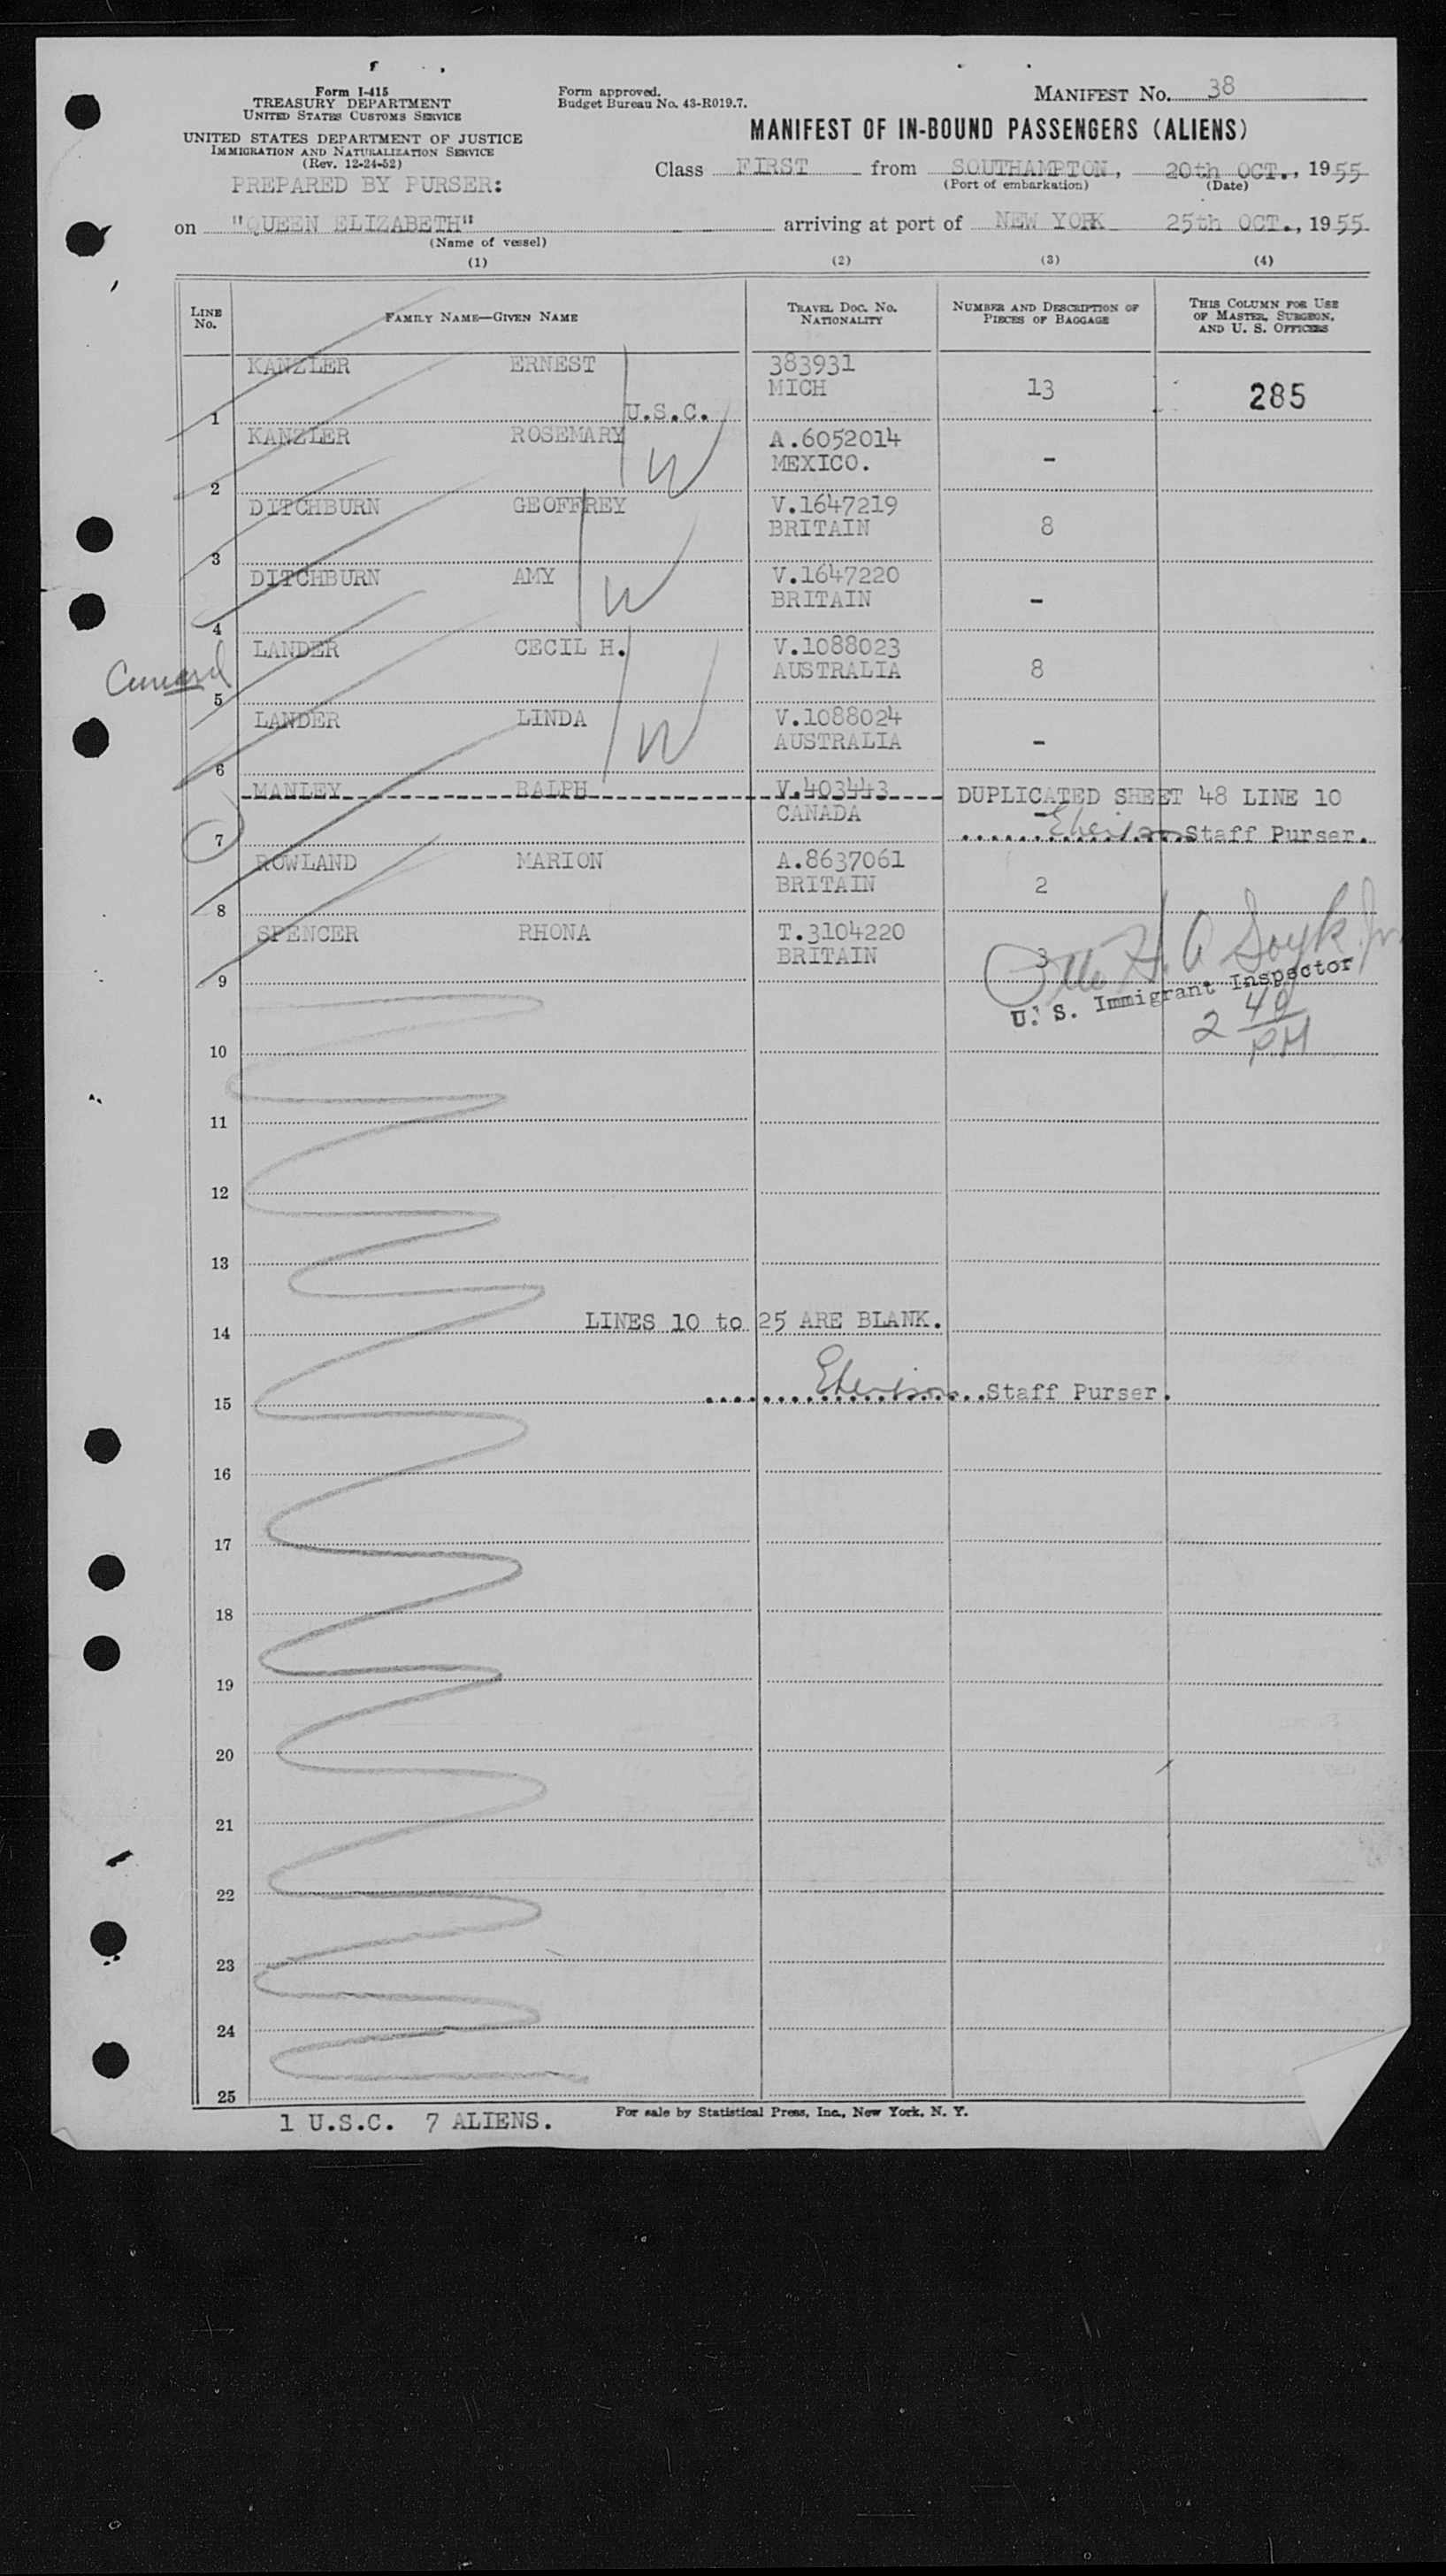 Form I-415
TREASURY DEPARTMENT
UNITED STATES CUSTOMS SERVICE
UNITED STATES DEPARTMENT OF JUSTICE
IMMIGRATION AND NATURALIZATION SERVICE
(Rev. 12-24-52)
PREPARED BY PURSER:
Form approved.
Budget Bureau No. 43-R019.7.
MANIFEST No. 38
MANIFEST OF IN-BOUND PASSENGERS (ALIENS)
Class FIRST from SOUTHAMPTON, 20th OCT., 1955
(Port of embarkation) (Date)
on "QUEEN ELIZABETH" arriving at port of NEW YORK 25th OCT., 1955
(Name of vessel)
(1) (2) (3) (4)
LINE No. FAMILY NAME—GIVEN NAME TRAVEL DOC. NO. NATIONALITY NUMBER AND DESCRIPTION OF PIECES OF BAGGAGE THIS COLUMN FOR USE OF MASTER, SURGEON, AND U. S. OFFICERS
KANZLER ERNEST 383931
MICH 13 285
1 U.S.C.
KANZLER ROSEMARY A.6052014
W MEXICO. -
2
DITCHBURN GEOFFREY V.1647219
BRITAIN 8
3
DITCHBURN AMY V.1647220
W BRITAIN -
4
LANDER CECIL H. V.1088023
Cunard AUSTRALIA 8
5
LANDER LINDA V.1088024
W AUSTRALIA -
6
MANLEY RALPH V.403443 DUPLICATED SHEET 48 LINE 10
CANADA -
7 Staff Purser.
ROWLAND MARION A.8637061
BRITAIN 2
8
SPENCER RHONA T.3104220
BRITAIN 3
9
U. S. Immigrant Inspector
2 40 PM
10
11
12
13
14 LINES 10 to 25 ARE BLANK.
15 Staff Purser.
16
17
18
19
20
21
22
23
24
25
1 U.S.C. 7 ALIENS. For sale by Statistical Press, Inc., New York, N. Y.